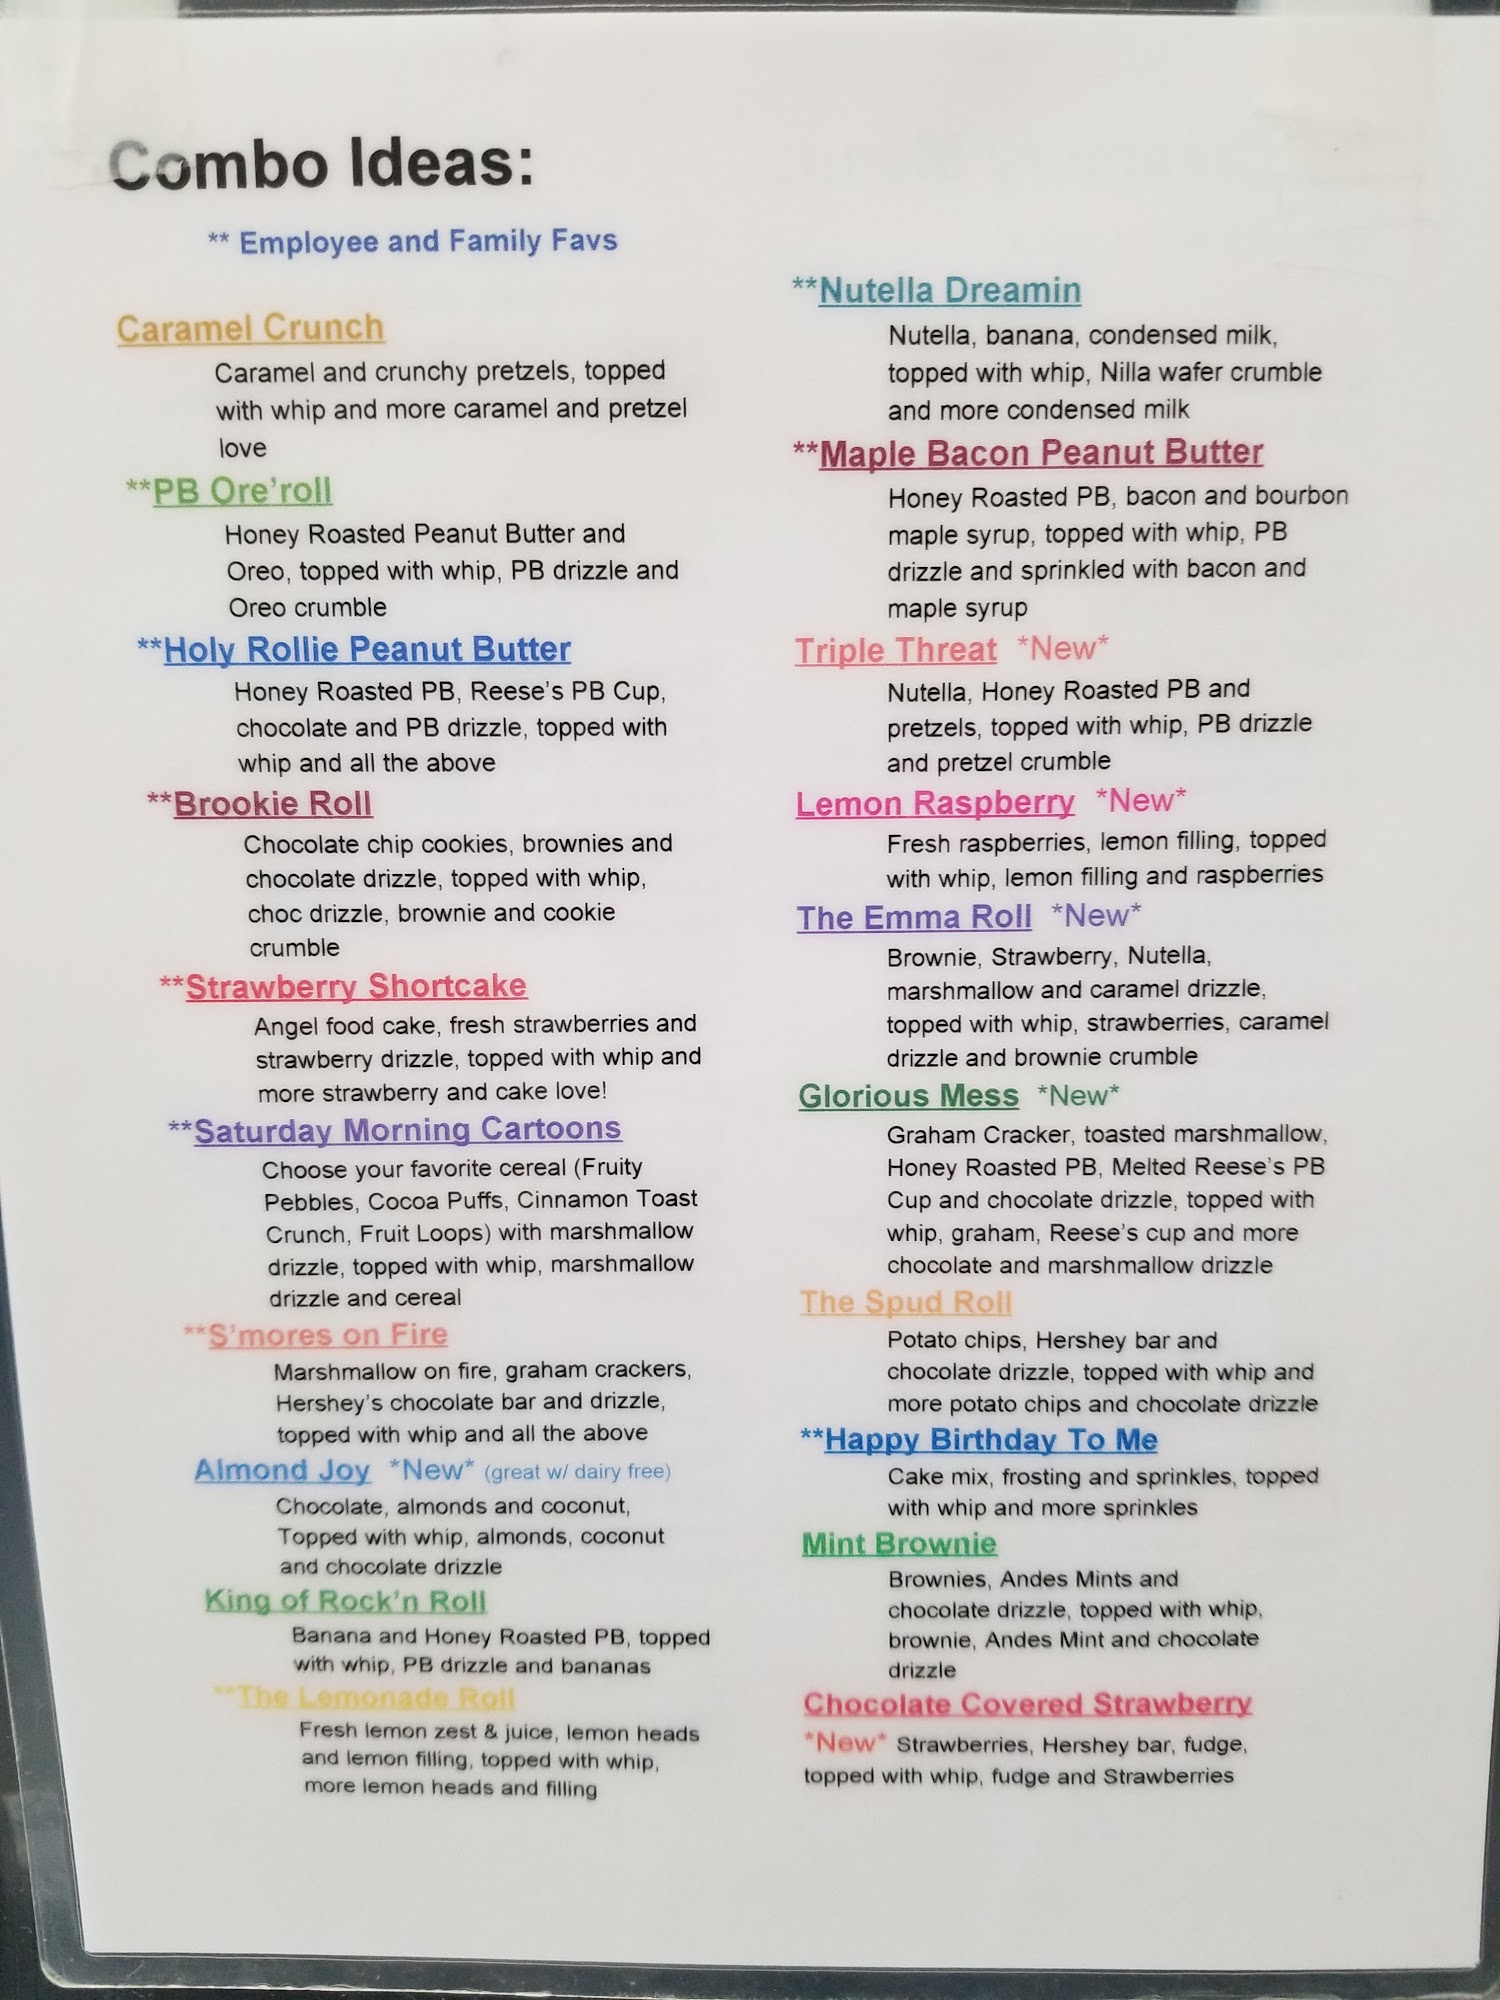 Combo Ideas:
** Employee and Family Favs
Caramel Crunch
Caramel and crunchy pretzels, topped
with whip and more caramel and pretzel
love
**PB Ore'roll
Honey Roasted Peanut Butter and
Oreo, topped with whip, PB drizzle and
Oreo crumble
**Holy Rollie Peanut Butter
Honey Roasted PB, Reese's PB Cup,
chocolate and PB drizzle, topped with
whip and all the above
**Brookie Roll
Chocolate chip cookies, brownies and
chocolate drizzle, topped with whip,
choc drizzle, brownie and cookie
crumble
**Strawberry Shortcake
Angel food cake, fresh strawberries and
strawberry drizzle, topped with whip and
more strawberry and cake love!
**Saturday Morning Cartoons
Choose your favorite cereal (Fruity
Pebbles, Cocoa Puffs, Cinnamon Toast
Crunch, Fruit Loops) with marshmallow
drizzle, topped with whip, marshmallow
drizzle and cereal
**S'mores on Fire
Marshmallow on fire, graham crackers,
Hershey's chocolate bar and drizzle,
topped with whip and all the above
Almond Joy *New* (great w/ dairy free)
Chocolate, almonds and coconut,
Topped with whip, almonds, coconut
and chocolate drizzle
King of Rock'n Roll
Banana and Honey Roasted PB, topped
with whip, PB drizzle and bananas
**The Lemonade Roll
Fresh lemon zest & juice, lemon heads
and lemon filling, topped with whip,
more lemon heads and filling
**Nutella Dreamin
Nutella, banana, condensed milk,
topped with whip, Nilla wafer crumble
and more condensed milk
**Maple Bacon Peanut Butter
Honey Roasted PB, bacon and bourbon
maple syrup, topped with whip, PB
drizzle and sprinkled with bacon and
maple syrup
Triple Threat *New*
Nutella, Honey Roasted PB and
pretzels, topped with whip, PB drizzle
and pretzel crumble
Lemon Raspberry *New*
Fresh raspberries, lemon filling, topped
with whip, lemon filling and raspberries
The Emma Roll *New*
Brownie, Strawberry, Nutella,
marshmallow and caramel drizzle,
topped with whip, strawberries, caramel
drizzle and brownie crumble
Glorious Mess *New*
Graham Cracker, toasted marshmallow,
Honey Roasted PB, Melted Reese's PB
Cup and chocolate drizzle, topped with
whip, graham, Reese's cup and more
chocolate and marshmallow drizzle
The Spud Roll
Potato chips, Hershey bar and
chocolate drizzle, topped with whip and
more potato chips and chocolate drizzle
**Happy Birthday To Me
Cake mix, frosting and sprinkles, topped
with whip and more sprinkles
Mint Brownie
Brownies, Andes Mints and
chocolate drizzle, topped with whip,
brownie, Andes Mint and chocolate
drizzle
Chocolate Covered Strawberry
*New* Strawberries, Hershey bar, fudge,
topped with whip, fudge and Strawberries